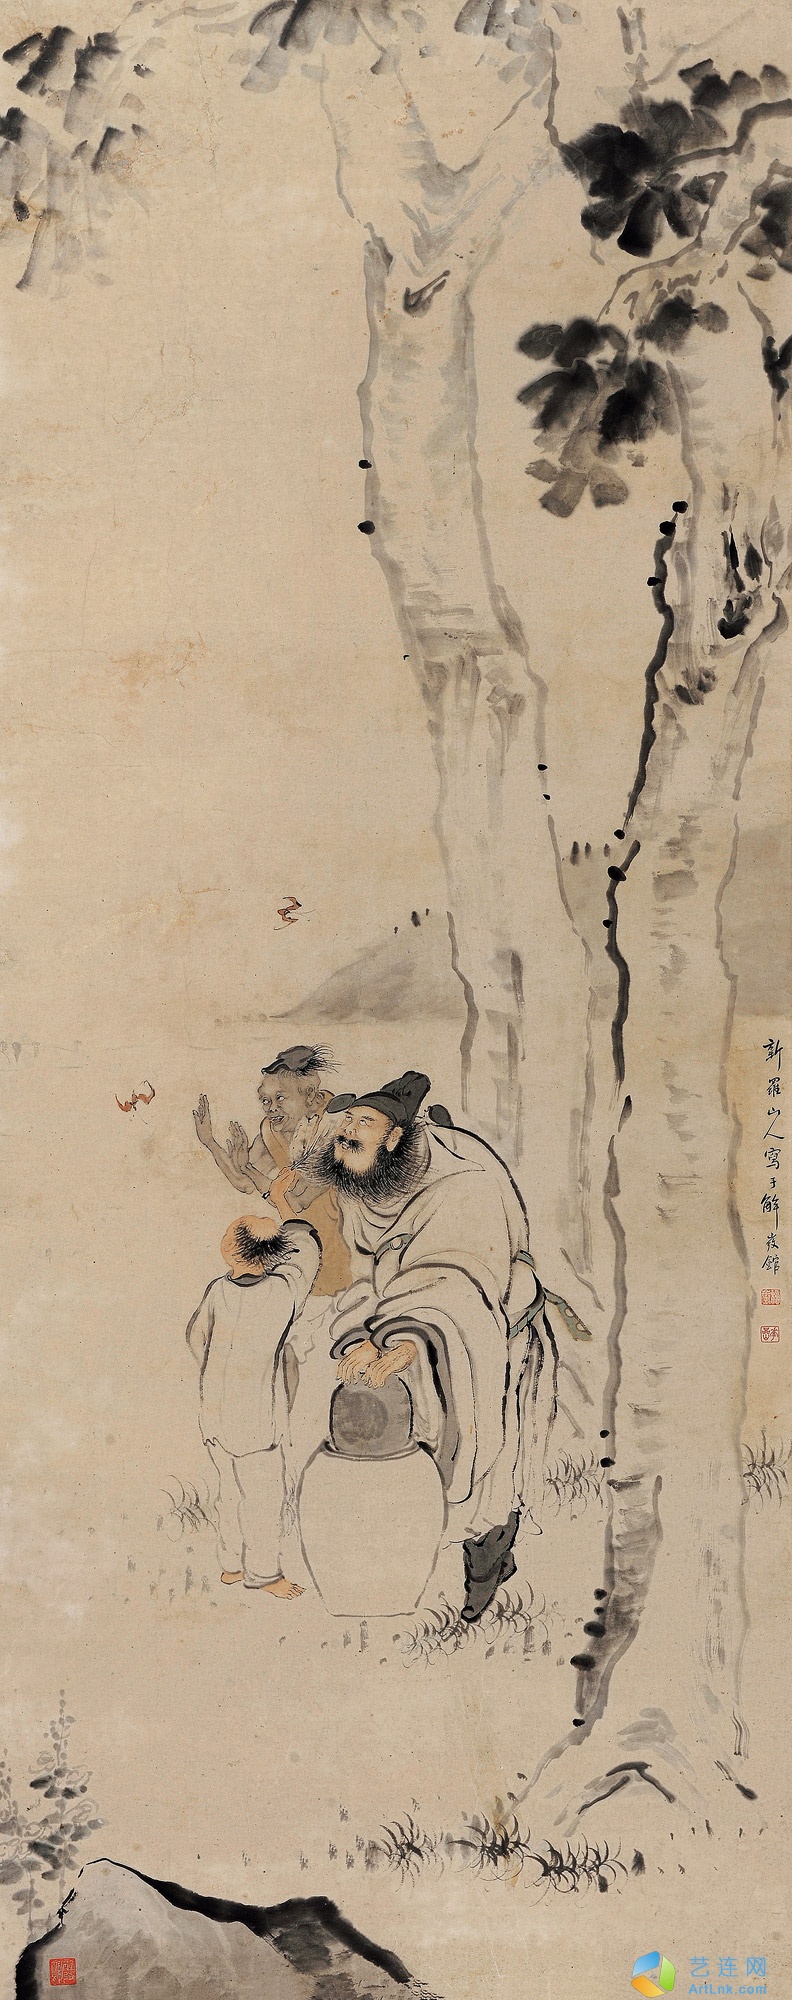 新羅山人寫于解弢館
艺连网
ArtLnk.com